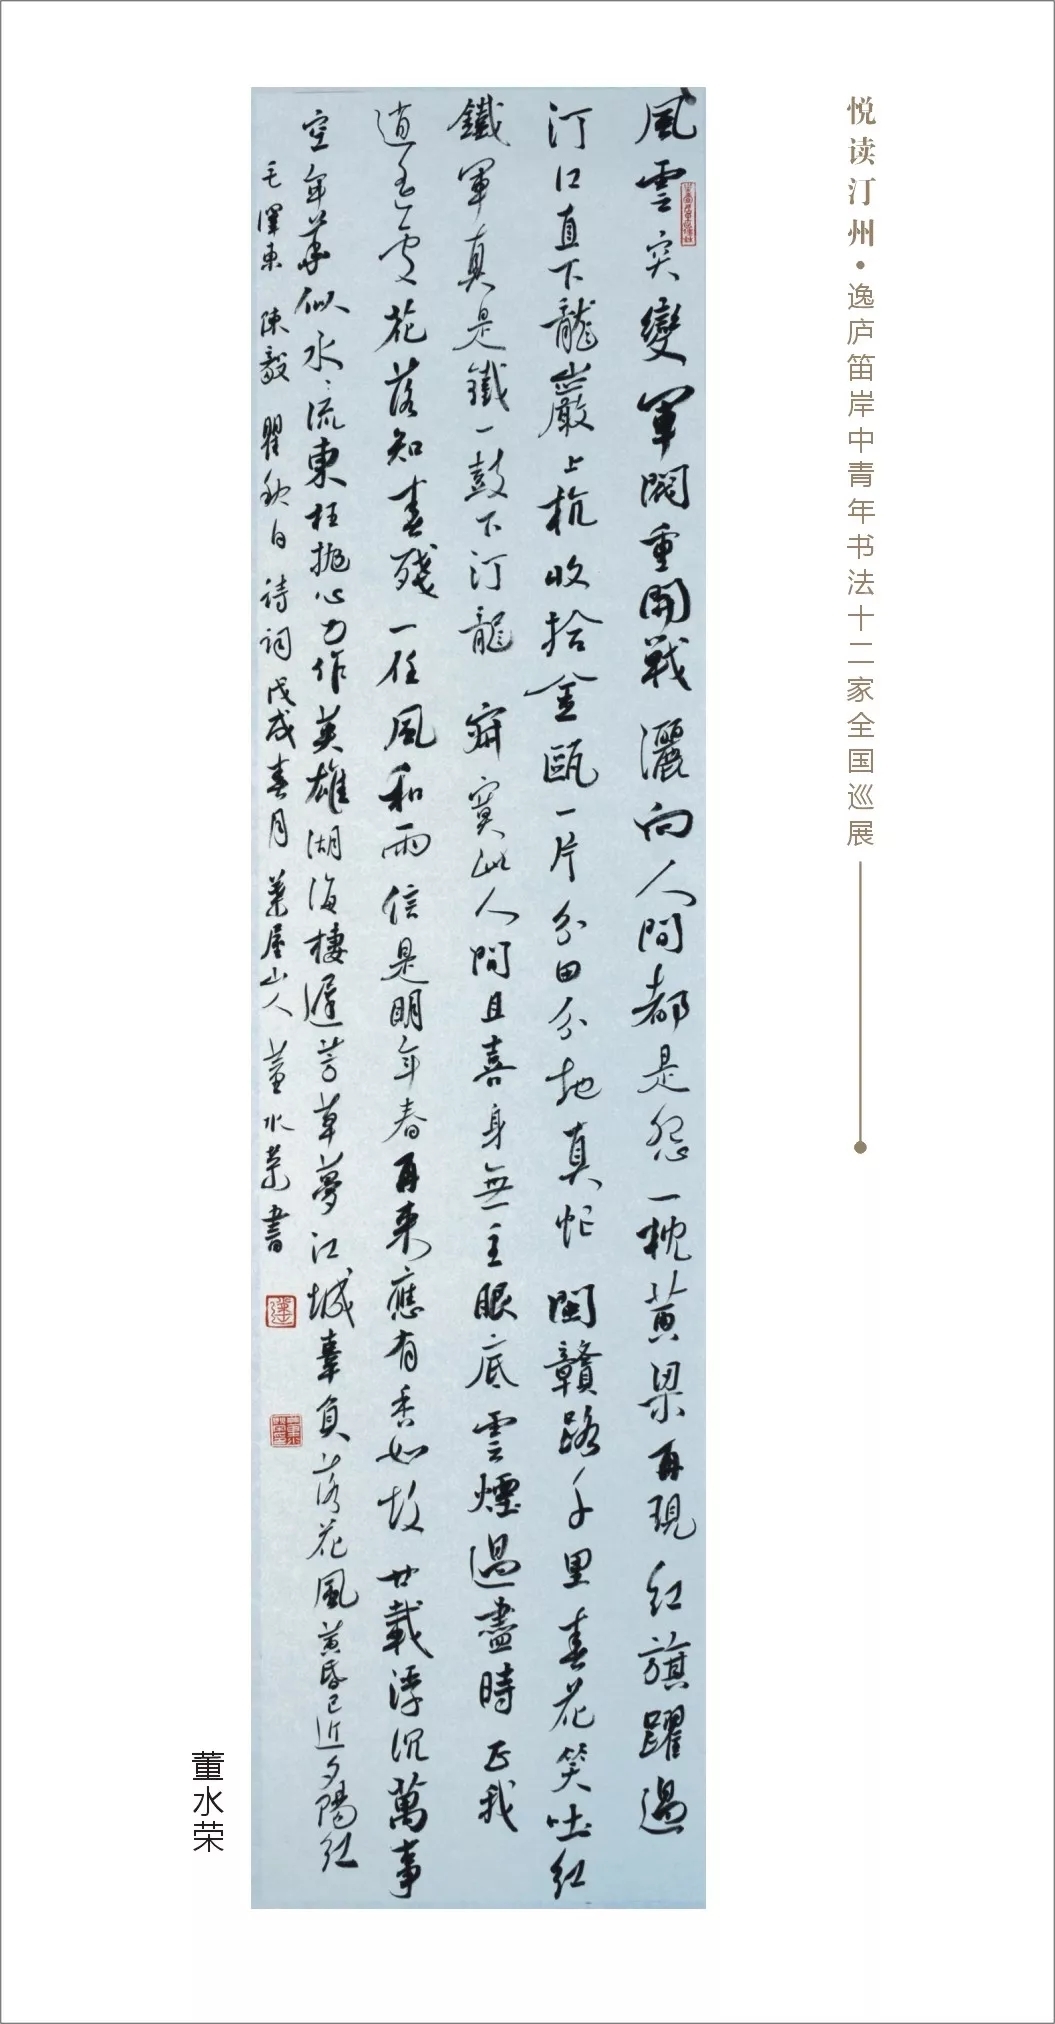 悦读汀州•逸庐笛岸中青年书法十二家全国巡展
風雲突變軍閥重開戰灑向人間都是怨一枕黃粱再現紅旗躍過
汀江直下龍巖上杭收拾金甌一片分田分地真忙閩贛路千里春花笑吐紅
鐵軍真是鐵一鼓下汀龍寂寞此人間且喜身無主眼底雲煙過盡時正我
逍遙處花落知春殘一任風和雨信是明年春再來應有香如故廿載浮沉萬事
空年華似水水流東枉拋心力作英雄湖海棲遲芳草夢江城辜負落花風黃昏已近夕陽紅
毛澤東 陳毅 瞿秋白 詩詞 戊戌春月 屋山人 董水榮書
董水荣